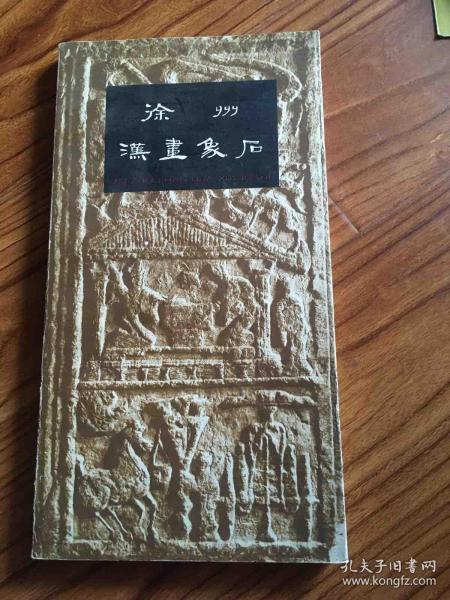 徐州
漢畫象石
孔夫子旧书网
www.kongfz.com